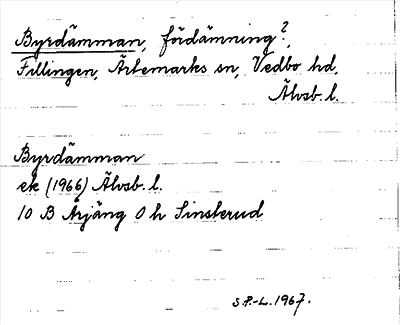 Byrdämman, fördämning?,
Fillingen, Ärtemarks sn, Vedbo hd,
Älvsb. l.
Byrdämman
ek (1966) Älvsb. l.
10 B Årjäng 0 h Sinsterud
S.P.-L. 1967.